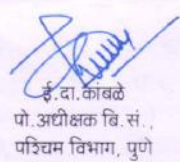 ई.दा.कांबळे
पो.अधीक्षक बि.सं.,
पश्चिम विभाग, पुणे